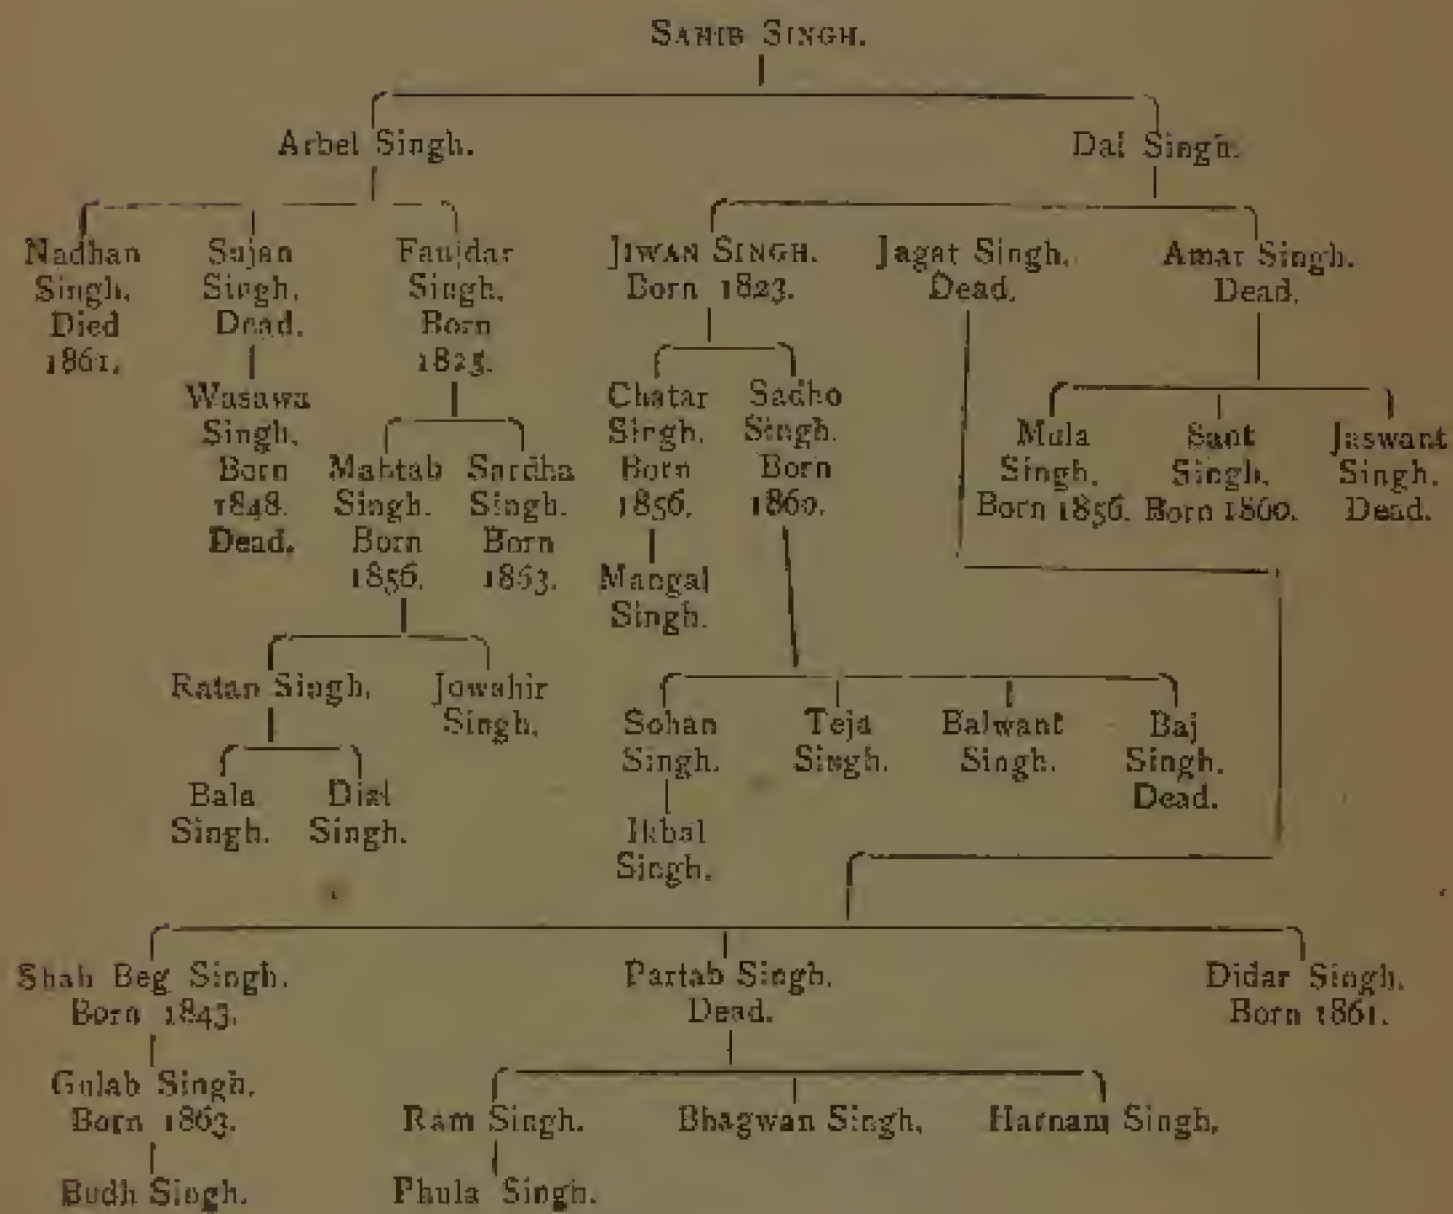 SAHIB SINGH.
Arbel Singh.
Dal Singh.
Nadhan
Singh.
Died
1861.
Sujan
Singh.
Dead.
Faujdar
Singh.
Born
1825.
JIWAN SINGH.
Born 1823.
Jagat Singh.
Dead.
Amar Singh.
Dead.
Wasawa
Singh.
Born
1848.
Dead.
Mahtab
Singh.
Born
1856.
Sardha
Singh.
Born
1863.
Chatar
Singh.
Born
1856.
Sadho
Singh.
Born
1860.
Mula
Singh.
Born 1856.
Sant
Singh.
Born 1860.
Jaswant
Singh.
Dead.
Mangal
Singh.
Ratan Singh.
Jowahir
Singh.
Sohan
Singh.
Teja
Singh.
Balwant
Singh.
Baj
Singh.
Dead.
Bala
Singh.
Dial
Singh.
Ikbal
Singh.
Shah Beg Singh.
Born 1843.
Partab Singh.
Dead.
Didar Singh.
Born 1861.
Gulab Singh.
Born 1863.
Ram Singh.
Bhagwan Singh.
Harnam Singh.
Budh Singh.
Phula Singh.